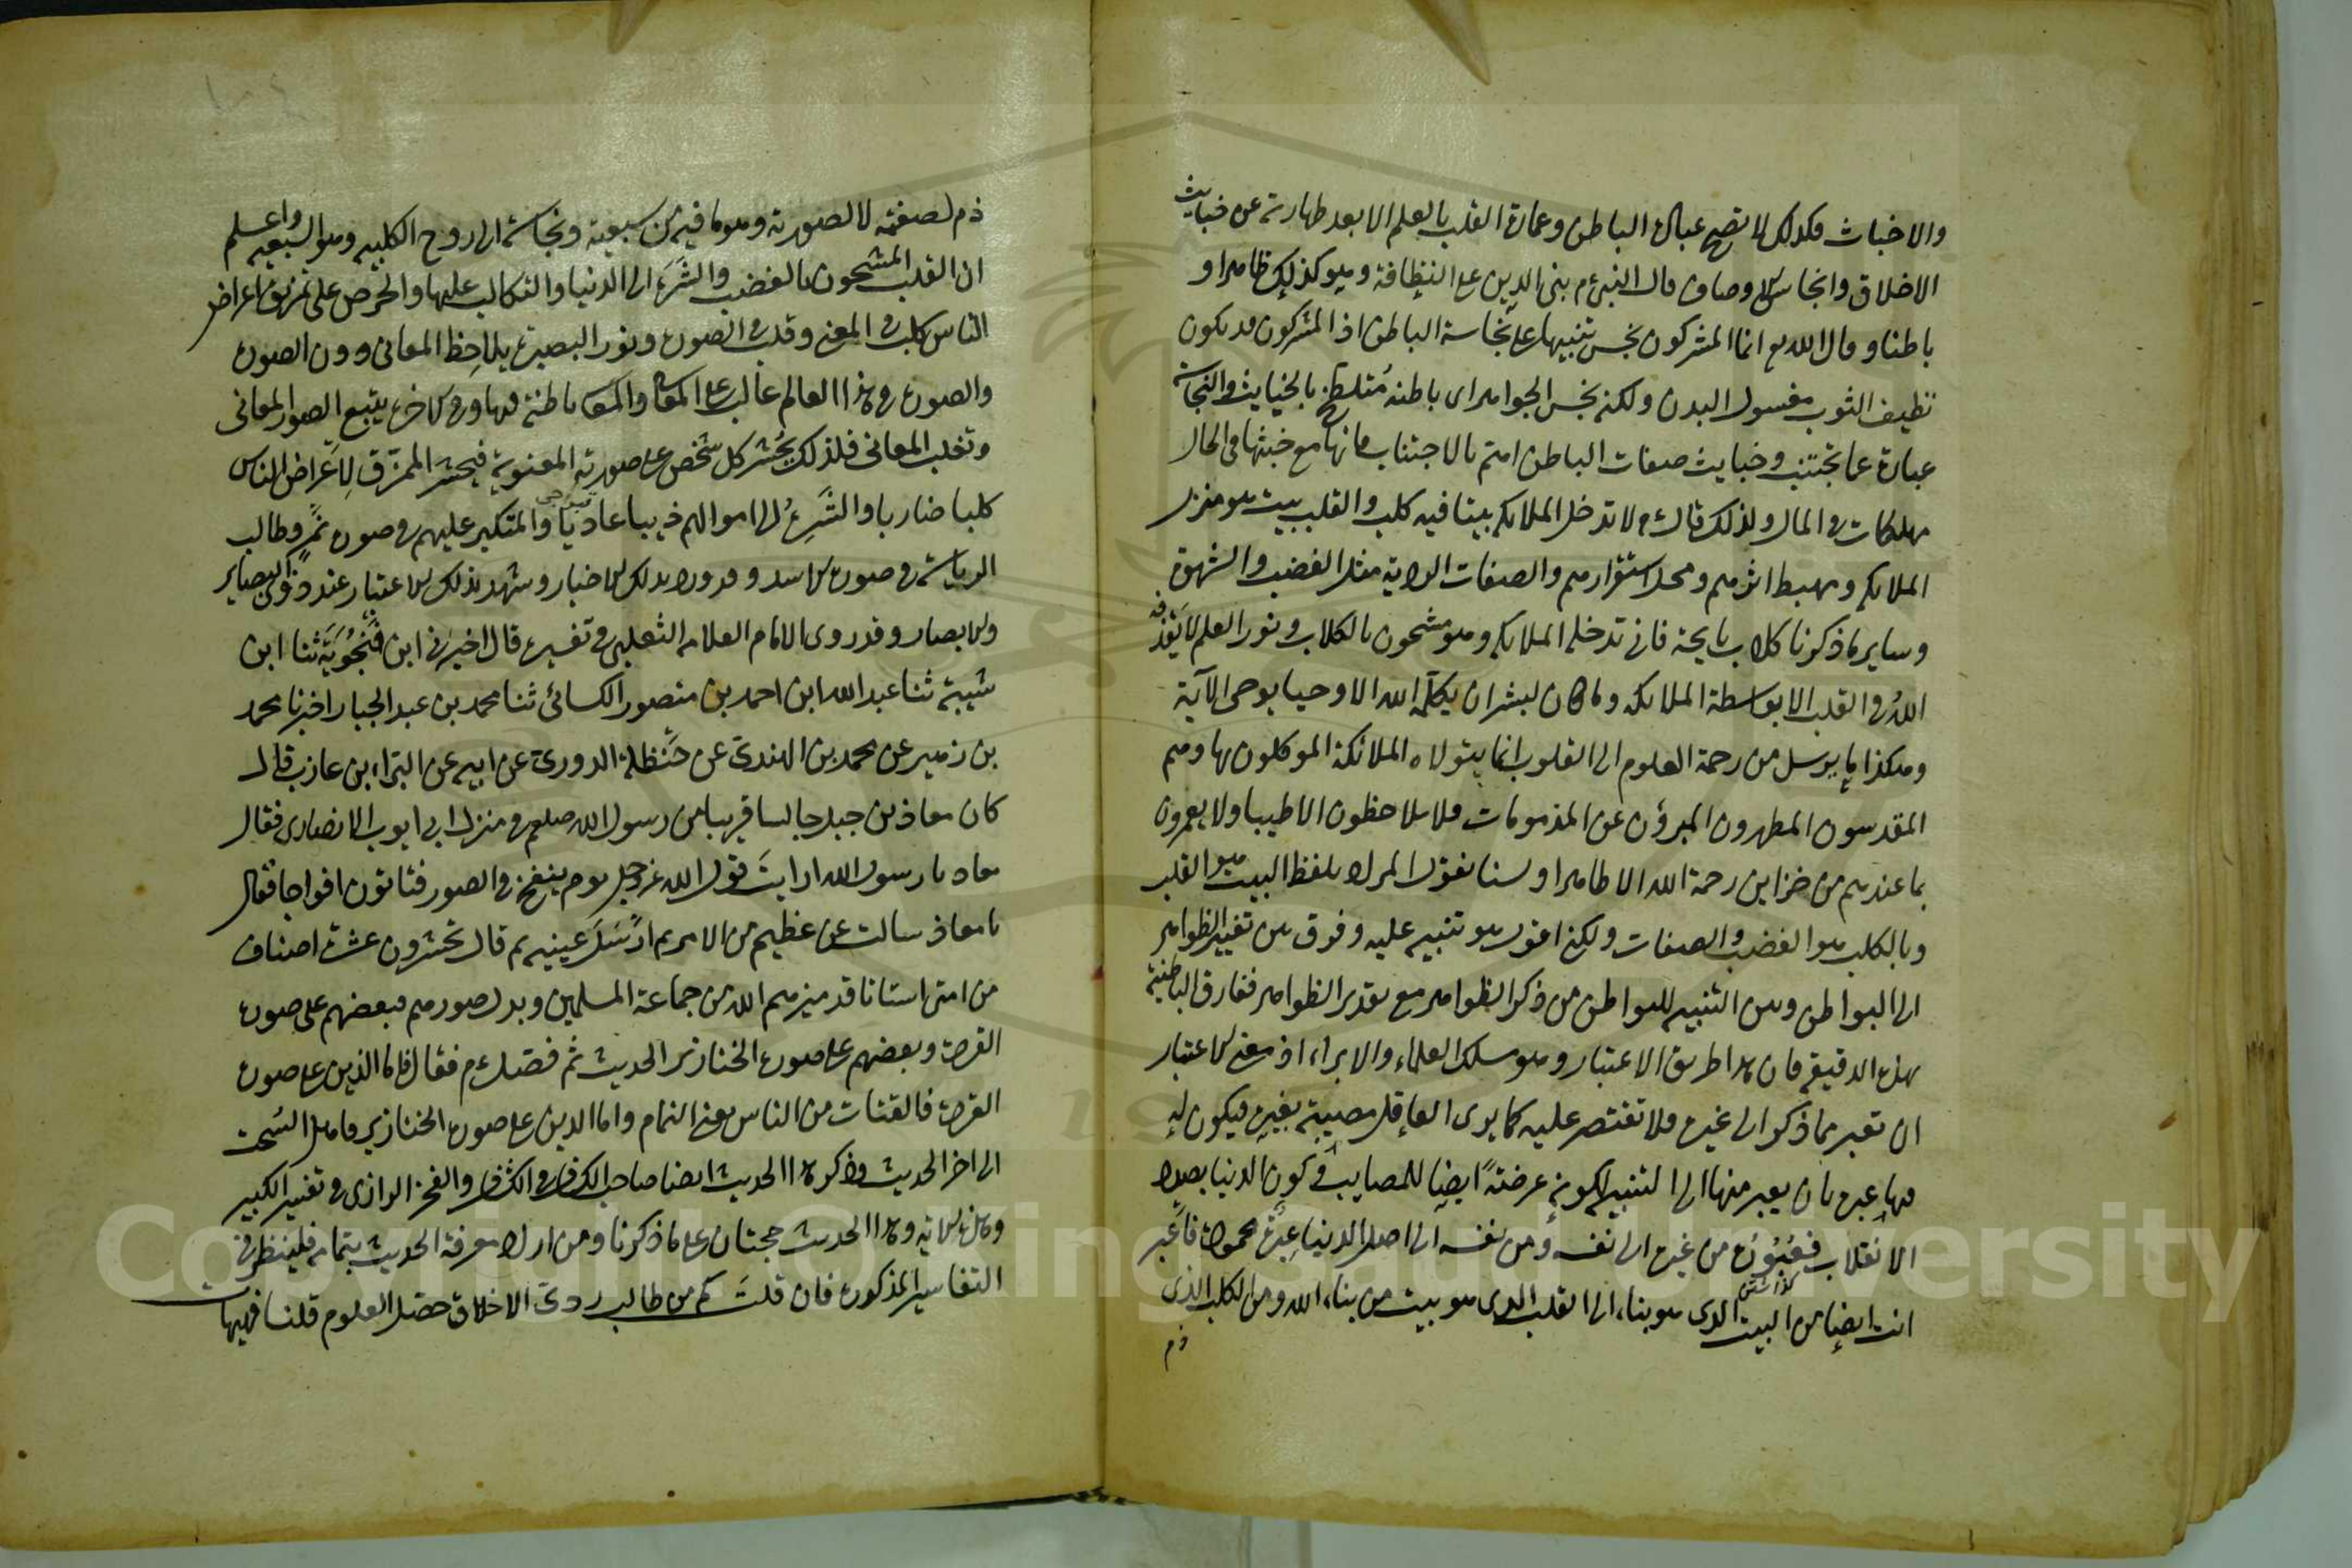 والاخباث فكذلك لا تصح عبادة الباطن وعمارة القلب بالعلم الا بعد طهارته عن خبايث
الاخلاق وانجاس الاوصاف قال النبي م بنى الدين على النظافة وهو كذلك ظاهرا و
باطنا وقال الله تع انما المشركون نجس تنبيها على نجاسة الباطن اذ المشركون قد يكون
نظيف الثوب مغسول البدن ولكنه نجس الجواهر اى باطنه مُتلطخ بالخبايث والنجاسة
عبارة عما تجتنب وخبايث صفات الباطن اهتم بالاجتناب فانها مع خبثها في الحال
مهلكات في المال ولذلك قال م لا تدخل الملايكة بيتا فيه كلب والقلب بيت هو منزل
الملايكة ومهبط اثرهم ومحل استقرارهم والصفات الردية مثل الغضب والشهوة
وساير ما ذكرنا كلاب نابحة فانى تدخله الملايكة وهو مشحون بالكلاب ونور العلم لا يقذفه
اللهُ في القلب الا بواسطة الملائكة وما كان لبشر ان يكلمه الله الا وحيا يوحى الآية
وهكذا ما يرسل من رحمة العلوم الى القلوب انما يتولاه الملائكة الموكلون بها وهم
المقدسون المطهرون المبرؤن عن المذمومات فلا يلاحظون الا طيبا ولا يعمرون
بما عندهم من خزاين رحمة الله الا طاهرا ولسنا نقول المراد بلفظ البيت هو القلب
وبالكلب هو الغضب والصفات ولكن اقول هو تنبيه عليه وفرق بين تغيير الظواهر
الى البواطن وبين التنبيه للبواطن من ذكر الظواهر مع تقدير الظواهر ففارق الباطنية
بهذه الدقيقة فان هذا طريق الاعتبار وهو مسلك العلماء والابرار اذ معنى الاعتبار
ان تعبر مما ذكر الى غيره فلا تقتصر عليه كما يرى العاقل مصيبة بغيره فيكون له
فيها عبرة بان يعبر منها الى التنبيه لكونه عرضةً ايضا للمصايب وكون الدنيا بصدد
الانقلاب فعبوره من غيره الى نفسه ومن نفسه الى اصل الدنيا عبرة محمودة فاعبر
انت ايضا من البيت الذى هو بناء الى القلب الذى هو بيت من بناء الله ومن الكلب الذى
ذم
ذم لصفته لا لصورته وهو ما فيه من سبعية ونجاسة الى روح الكلبية وهو السبعية واعلم
ان القلب المشحون بالغضب والشَّرَه الى الدنيا والتكالب عليها والحرص على تمزيق اعراض
الناس كلب في المعنى وقلب في الصورة ونور البصيرة يلاحظ المعانى دون الصورة
والصورة في هذا العالم غالب على المعانى والمعانى باطنة فيها وفي الاخرة يتبع الصور المعانى
وتغلب المعانى فلذلك يُحشر كل شخص على صورته المعنوية فيحشر المُمزّق لِاَعراض الناس
كلبا ضاريا والشَّرِهُ الى اموالهم ذيبا عاديا والمتكبر عليهم في صورة نمرٍ وطالب
الرياسة في صورة الاسد وقد ورد بذلك الاخبار وشهد بذلك الاعتبار عند ذوى البصاير
والابصار وقد روى الامام العلامة الثعلبي في تفسيره قال اخبرنى ابن فَنجُويَة ثنا ابن
شيبة ثنا عبد الله ابن احمد بن منصور الكسائى ثنا محمد بن عبد الجبار اخبرنا محمد
بن زهير عن محمد بن الهندى عن حَنظلة الدورى عن ابيه عن البراء بن عازب قال
كان معاذ بن جبل جالسا قريبا من رسول الله صلعم في منزل ابى ايوب الانصارى فقال
معاذ يا رسول الله ارايتَ قول الله عز وجل يوم ينفخ في الصور فتاتون افواجا فقال
يا معاذ سالت عن عظيم من الامر ثم ارسَلَ عينيه ثم قال تحشرون عشرة اصناف
من امتى اشتاتا قد ميزهم الله من جماعة المسلمين وبدل صورهم فبعضهم على صورة
القردة وبعضهم على صورة الخنازير الحديث ثم فصّل م فقال فاما الذين على صورة
القردة فالقتات من الناس يعنى النمام واما الذين على صورة الخنازير فاهل السُحت
الى اخر الحديث وذكر هذا الحديث ايضا صاحب الكشاف في الكشاف والفخر الرازى في تفسيره الكبير
وهذه الاية وهذا الحديث حجتان على ما ذكرنا ومن اراد معرفة الحديث بتمامه فلينظر في
التفاسير المذكورة فان قلتَ كم من طالب ردىّ الاخلاق حصّل العلوم قلنا فهيهات